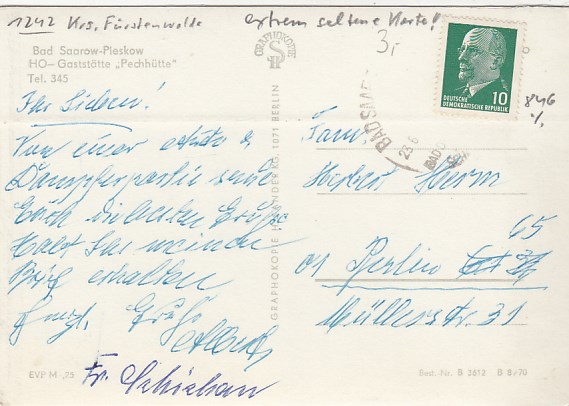 1242 Krs. Fürstenwalde
extrem seltene Karte!
3,-
Bad Saarow-Pieskow
HO-Gaststätte „Pechhütte"
Tel. 345
GRAPHOKOPIE
DEUTSCHE
DEMOKRATISCHE REPUBLIK
10
846
BAD SAAR
23.6
Ihr Lieben!
Von einer Auto &
Dampferpartie sende
Euch die besten Grüße
Habt Ihr meinen
Brief erhalten
Herzl. Grüße
Fr. Schichan
GRAPHOKOPIE H. SANDER KG, 1071 BERLIN
Fam.
Herbert Sturm
65
01 Berlin
Müllerstr. 31
EVP M -,25
Best.-Nr. B 3612 B 8/70